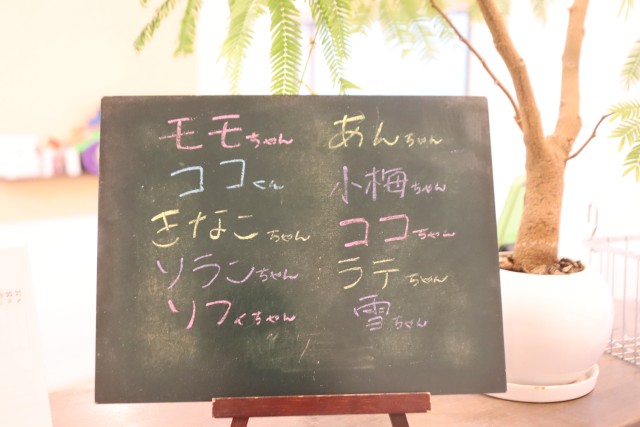 モモちゃん
ココくん
きなこちゃん
ソランちゃん
ソフィちゃん
あんちゃん
小梅ちゃん
ココちゃん
ラテちゃん
雪ちゃん